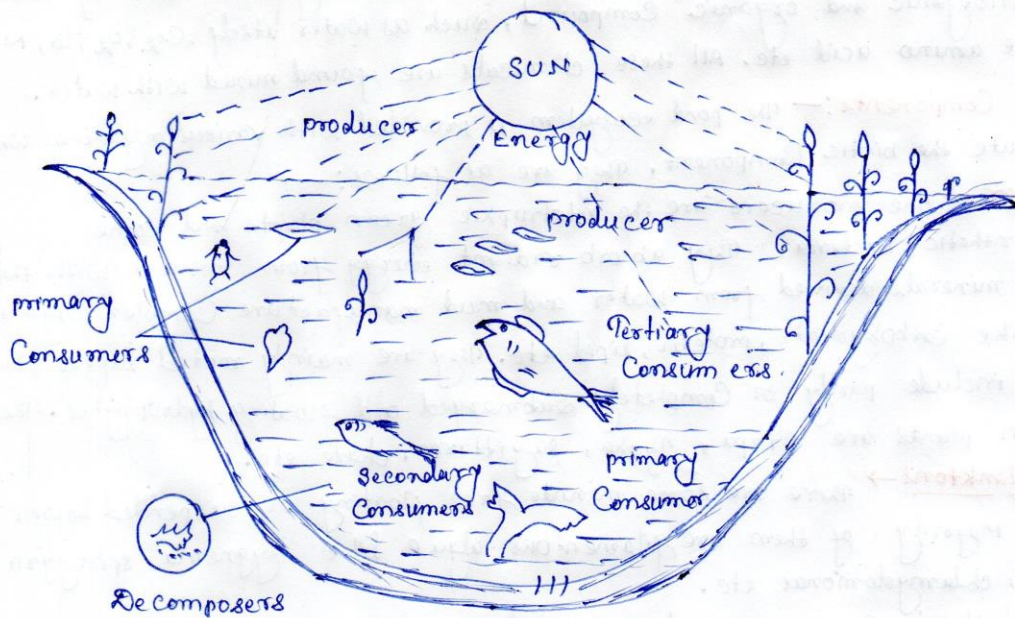 SUN
Energy
producer
producer
primary
Consumers
Tertiary
Consumers.
Secondary
Consumers
primary
Consumer
Decomposers